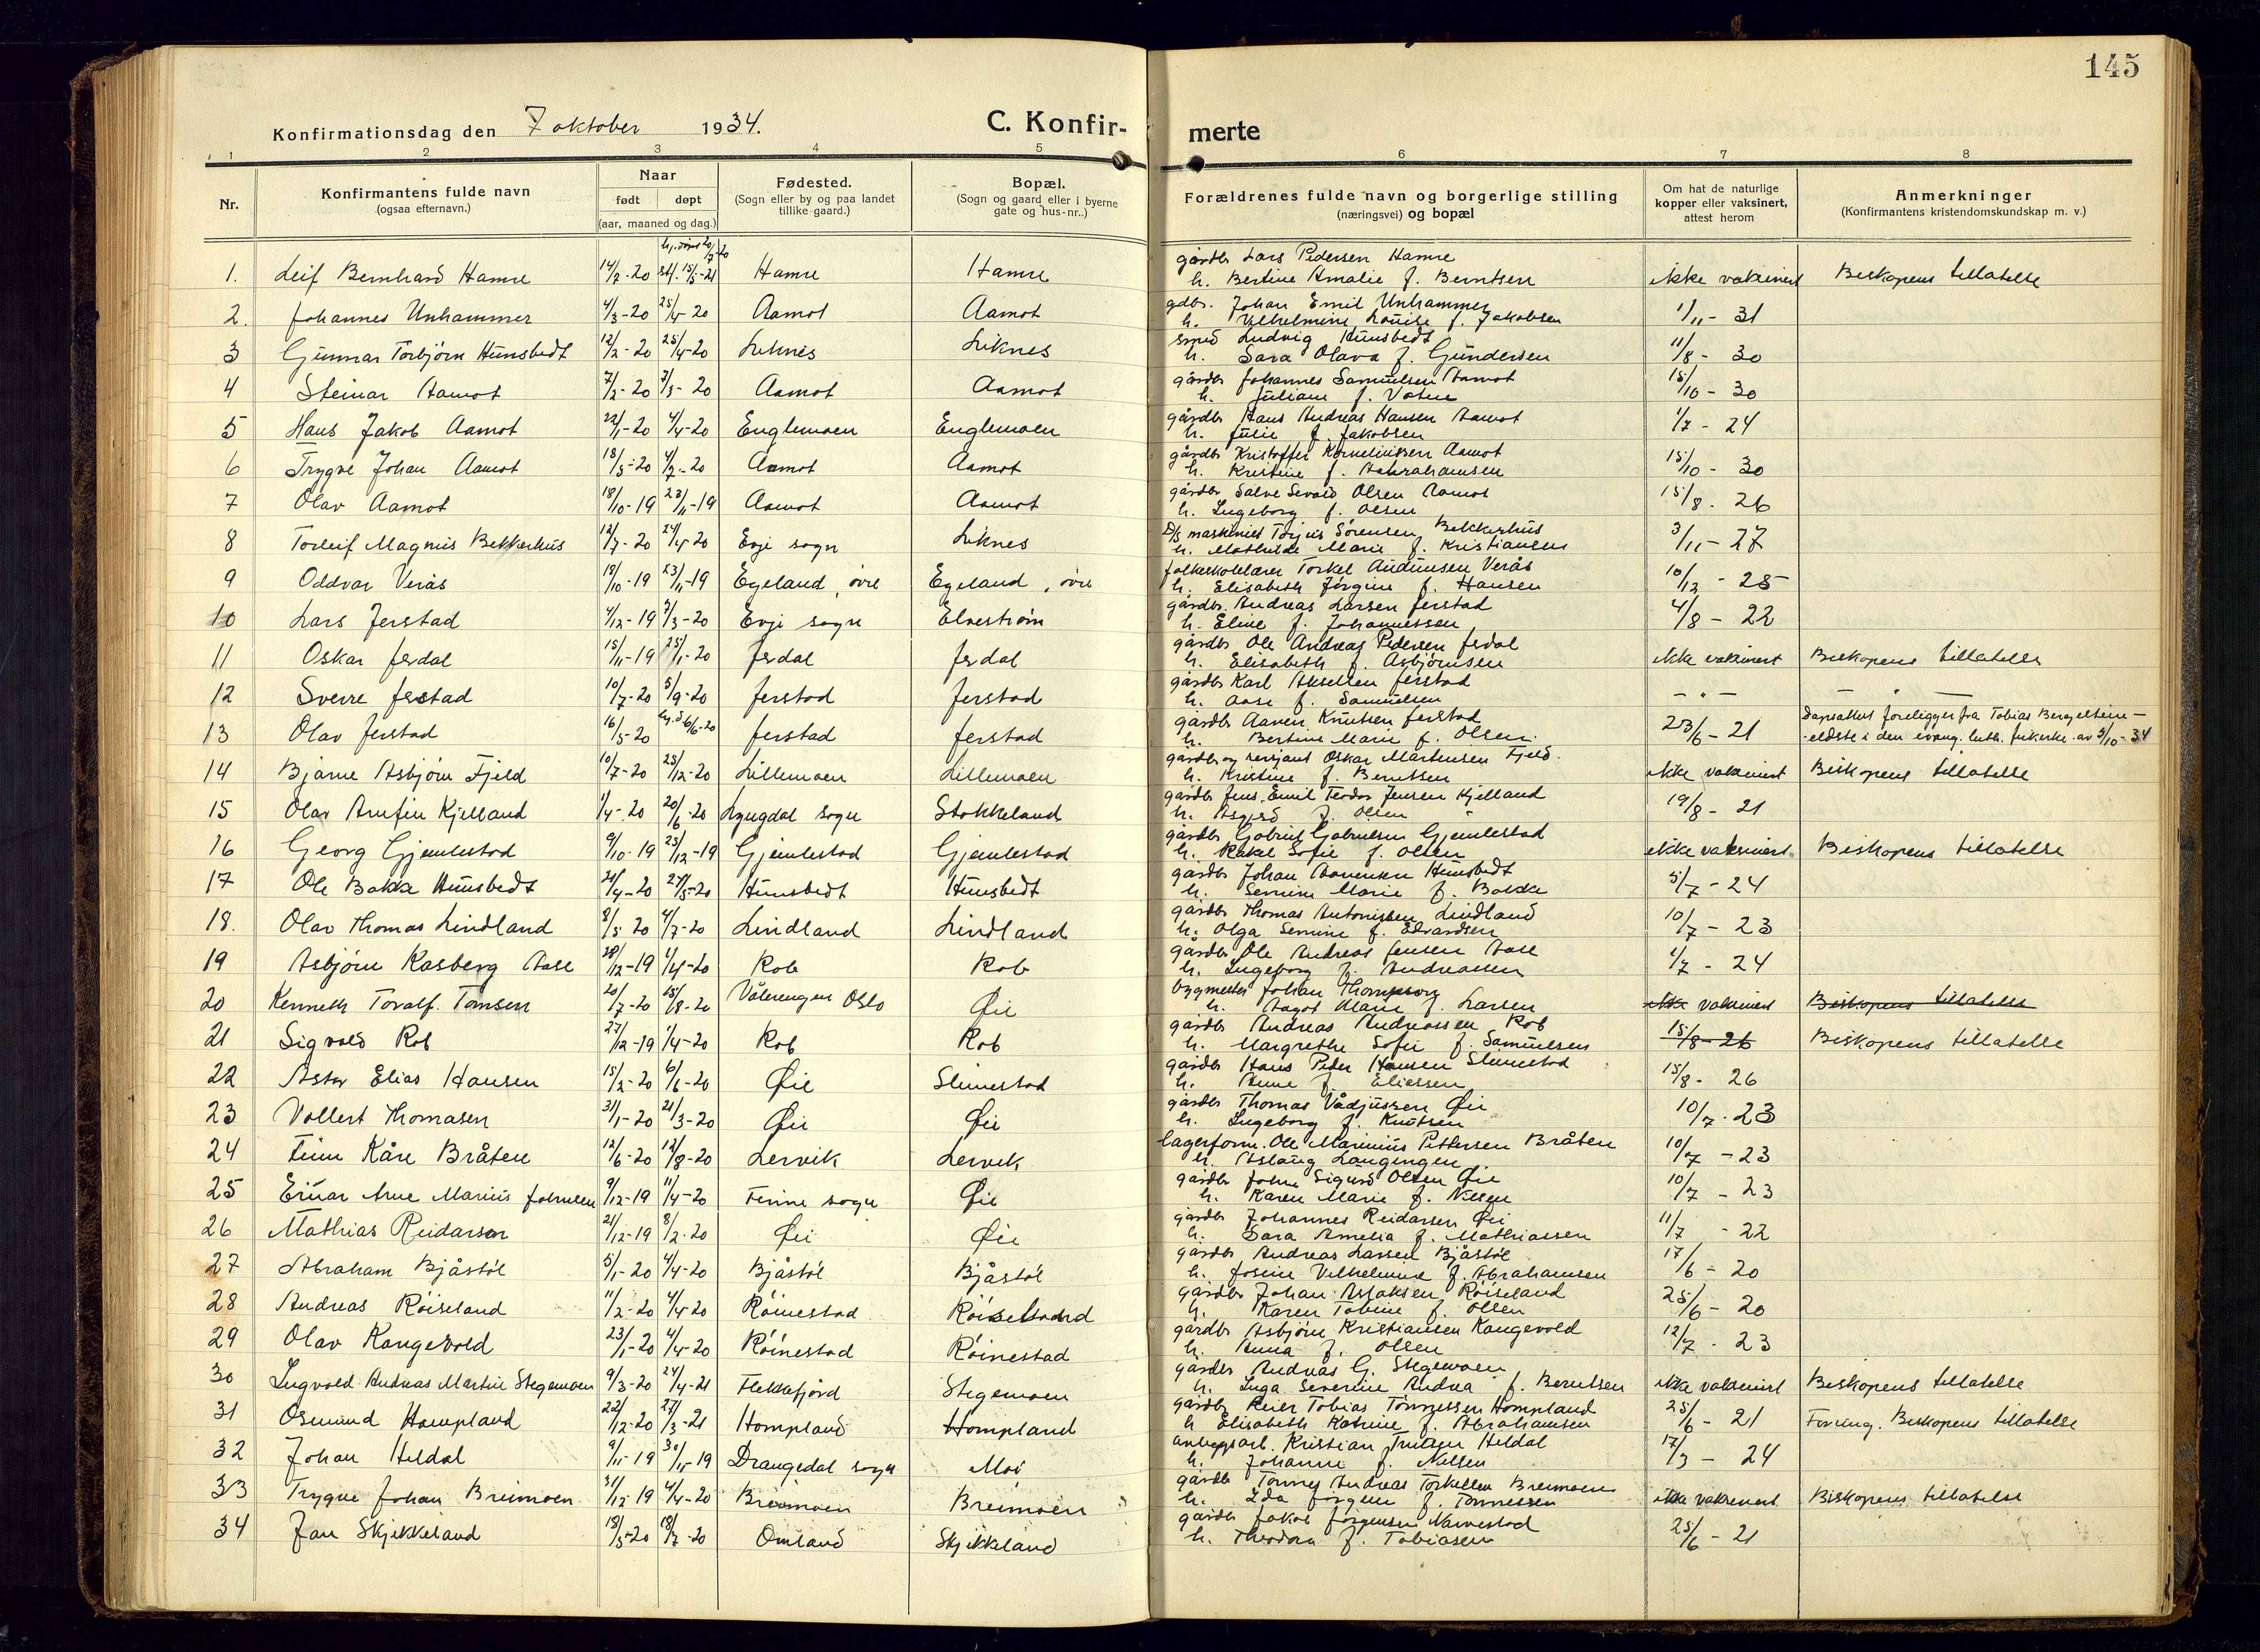 145
Konfirmationsdag den 7 oktober 1934. C. Konfir- merte
1 2 3 4 5 6 7 8
Nr. Konfirmantens fulde navn (ogsaa efternavn.) Naar født døpt (aar, maaned og dag.) Fødested. (Sogn eller by og paa landet tillike gaard.) Bopæl. (Sogn og gaard eller i byerne gate og hus-nr..) Forældrenes fulde navn og borgerlige stilling (næringsvei) og bopæl Om hat de naturlige kopper eller vaksinert, attest herom Anmerkninger (Konfirmantens kristendomskundskap m. v.)
1. Leif Bernhard Hamre 14/7-20 hj.døpt 20/7-20 st. 15/5-21 Hamre Hamre gårdbr Lars Pedersen Hamre
h. Bertine Amalie f. Berntsen ikke vaksinert Biskopens tillatelse
2. Johannes Unhammer 4/3-20 25/4-20 Aamot Aamot gdbr. Johan Emil Unhammer
h. Vilhelmine Louise f. Jakobsen 1/11-31
3 Gunnar Torbjørn Hunsbedt 12/2-20 25/4-20 Liknes Liknes smed Ludvig Hunsbedt
h. Sara Olava f. Gundersen 11/8-30
4 Steinar Aamot 7/2-20 7/3-20 Aamot Aamot gårdbr Johannes Samuelsen Aamot
h. Juliane f. Vatne 15/10-30
5 Hans Jakob Aamot 22/1-20 4/4-20 Englemoen Englemoen gårdbr Hans Andreas Hansen Aamot
h. Julie f. Jakobsen 1/7-24
6 Trygve Johan Aamot 18/5-20 4/7-20 Aamot Aamot gårdbr Kristoffer Korneliussen Aamot
h. Kristine f. Aabrahamsen 15/10-30
7 Olav Aamot 18/10-19 23/11-19 Aamot Aamot gårdbr Salve Sevald Olsen Aamot
h. Ingeborg f. Olsen 15/8-26
8 Torleif Magnus Bekkerhus 12/7-20 24/4-20 Evje sogn Liknes D/S maskinist Torjus Sørensen Bekkerhus
h. Mathilde Marie f. Kristiansen 3/11-27
9 Oddvar Verås 18/10-19 23/11-19 Egeland, øvre Egeland, øvre folkeskolelærer Torkel Audunsen Verås
h. Elisabeth Jørgine f. Hansen 10/12-25
10 Lars Jerstad 4/12-19 7/3-20 Evje sogn Elvestrøm gårdbr. Andreas Larsen Jerstad
h. Eline f. Johannessen 4/8-22
11 Oskar Jerdal 15/11-19 25/1-20 Jerdal Jerdal gårdbr Ole Andreas Pedersen Jerdal
h. Elisabeth f. Asbjørnsen ikke vaksinert Biskopens tillatelse
12 Sverre Jerstad 10/7-20 5/9-20 Jerstad Jerstad gårdbr Karl Akselsen Jerstad
h. Aase f. Samuelsen — " — — " —
13 Olav Jerstad 16/5-20 hj.d 6/6-20 Jerstad Jerstad gårdbr Aanen Knutsen Jerstad
h. Bertine Marie f. Olsen. 23/6-21 Dåpsattest foreligger fra Tobias Bergelteine-
-eldste i den evang. luth. frikirke av 3/10-34
14 Bjarne Asbjørn Fjeld 10/7-20 25/12-20 Lillemoen Lillemoen gårdbr og sersjant Oskar Martensen Fjeld.
h. Kristine f. Berntsen ikke vaksinert Biskopens tillatelse
15 Olav Arnfin Kjelland 1/4-20 20/6-20 Lyngdal sogn Stokkeland gårdbr Jens Emil Teodor Jensen Kjelland
h. Asgjerd f. Olsen 19/8-21
16 Georg Gjemlestad 9/10-19 25/12-19 Gjemlestad Gjemlestad gårdbr Gabriel Gabrielsen Gjemlestad
h. Rakel Sofie f. Olsen ikke vaksinert Biskopens tillatelse
17 Ole Bakke Hunsbedt 21/4-20 24/5-20 Hunsbedt Hunsbedt gårdbr Johan Aanensen Hunsbedt
h. Semine Marie f. Bakke 5/7-24
18. Olav Thomas Lindland 8/5-20 4/7-20 Lindland Lindland gårdbr Thomas Antonissen Lindland
h. Olga Semine f. Edvardsen 10/7-23
19 Asbjørn Kasberg Aase 28/12-19 1/4-20 Rob Rob gårdbr Ole Andreas Jensen Aase
h. Ingeborg f. Andreassen 1/7-24
20 Kenneth Toralf Tomsen 20/7-20 15/8-20 Vålerengen Oslo Øie bygmester Johan Thompson
h. Aagot Marie f. Larsen ikke vaksinert Biskopens tillatelse
21 Sigvald Rob 27/12-19 1/4-20 Rob Rob gårdbr Andreas Andreassen Rob
h. Margrethe Sofie f. Samuelsen 15/8-26 Biskopens tillatelse
22 Astor Elias Hansen 15/2-20 6/6-20 Øie Slimestad gårdbr Hans Peder Hansen Slimestad
h. Anne f. Eliassen 15/8-26
23 Vollert Thomasen 31/1-20 21/3-20 Øie Øie gårdbr Thomas Vådjussen Øie
h. Ingeborg f. Knutsen 10/7-23
24 Finn Kåre Bråten 12/6-20 12/8-20 Lervik Lervik lagerform. Ole Marinius Pettersen Bråten
h. Aslaug Laugingen 10/7-23
25 Einar Arne Marius Johnsen 9/12-19 11/4-20 Ferine sogn Øie gårdbr John Sigurd Olsen Øie
h. Karen Marie f. Nilsen 10/7-23
26 Mathias Reidarson 21/12-19 8/2-20 Øie Øie gårdbr Johannes Reidarsen Øie
h. Sara Amelia f. Mathiassen 11/7-22
27 Abraham Bjåstøl 5/1-20 4/4-20 Bjåstøl Bjåstøl gårdbr Andreas Larsen Bjåstøl
h. Josine Vilhelmine f. Abrahamsen 17/6-20
28 Andreas Røiseland 11/2-20 4/4-20 Røinestad Røiseland gårdbr Johan Aslaksen Røiseland
h. Karen Tobine f. Olsen 25/6-20
29 Olav Kongevold 23/1-20 4/4-20 Røinestad Røinestad gårdbr Asbjørn Kristiansen Kongevold
h. Anna f. Olsen 12/7-23
30 Ingvald Andreas Martin Stegemoen 9/3-20 24/4-21 Flekkefjord Stegemoen gårdbr Andreas G. Stegemoen
h. Inga Severine Andrea f. Berntsen ikke vaksinert Biskopens tillatelse
31 Osmund Hompland 22/12-20 27/3-21 Hompland Hompland gårdbr Reier Tobias Tønnessen Hompland
h Elisabeth Katrine f. Abrahamsen 25/6-21 For ung. Biskopens tillatelse
32 Johan Heldal 9/11-19 30/11-19 Drangedal sogn Moi anleggsarb. Kristian Trulsen Heldal
h. Johanne f. Nielsen 17/3-24
33 Trygve Johan Breimoen 31/12-19 4/4-20 Breimoen Breimoen gårdbr Tønnes Andreas Torkelsen Breimoen
h. Ida Jørgine f. Tønnessen ikke vaksinert Biskopens tillatelse
34 Jan Skjekkeland 18/5-20 18/7-20 Omland Skjekkeland gårdbr Jakob Jørgensen Narvestad
h. Theodora f. Tobiasen 25/6-21